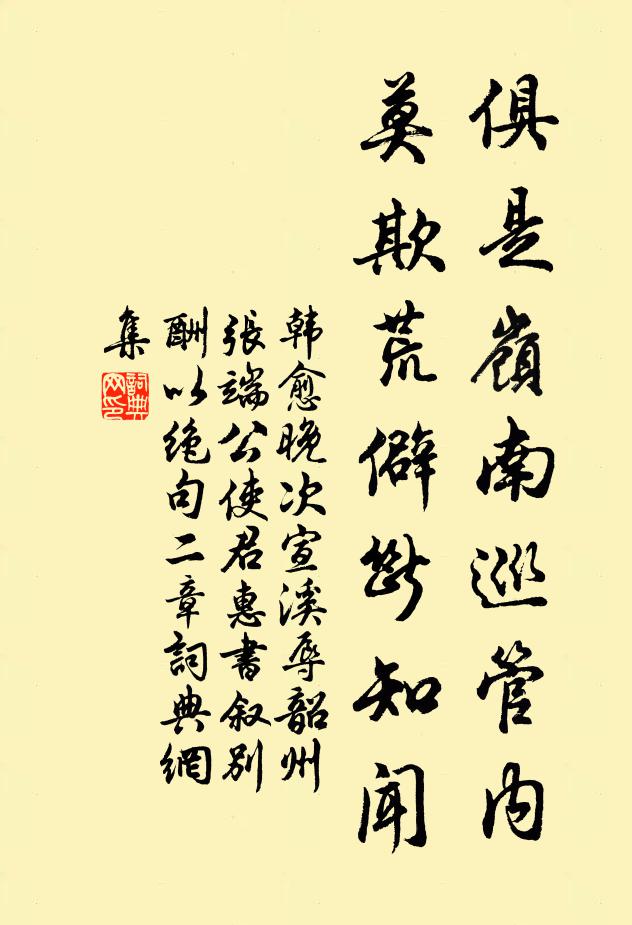 俱是嶺南巡管内
莫欺荒僻斷知聞
韓愈晚次宣溪辱韶州
張端公使君惠書叙别
酬以絶句二章詞典網
集
詞典网印